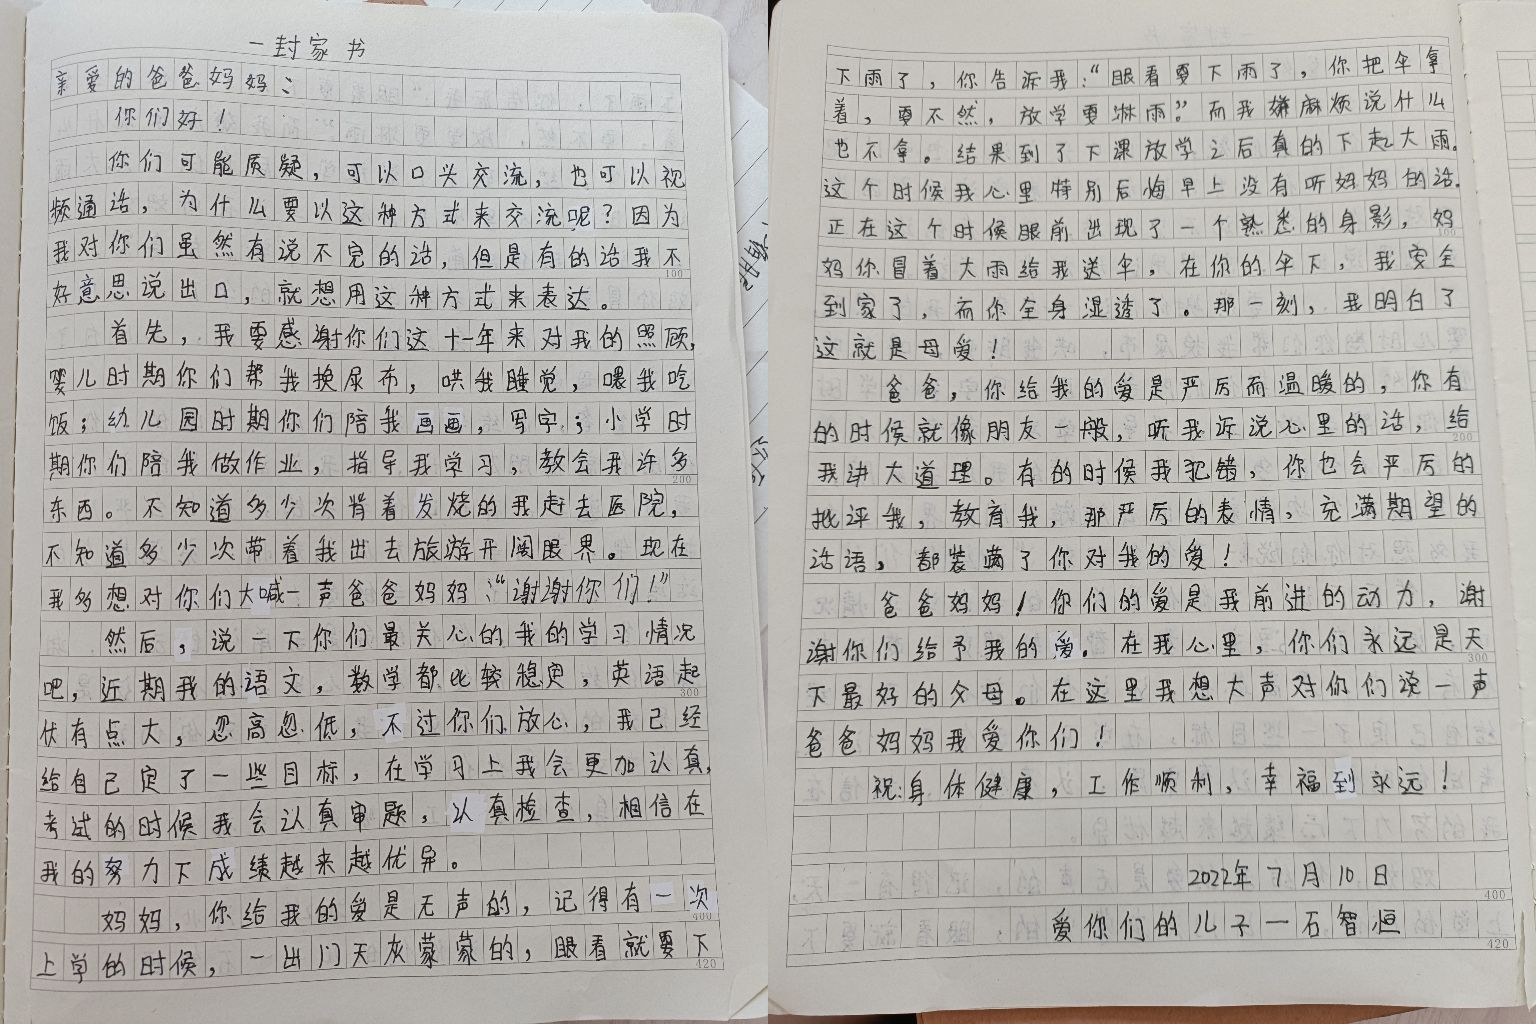 一封家书
亲爱的爸爸妈妈：
你们好！
你们可能质疑，可以口头交流，也可以视
频通话，为什么要以这种方式来交流呢？因为
我对你们虽然有说不完的话，但是有的话我不
100
好意思说出口，就想用这种方式来表达。
首先，我要感谢你们这十一年来对我的照顾，
婴儿时期你们帮我换尿布，哄我睡觉，喂我吃
饭；幼儿园时期你们陪我画画，写字；小学时
期你们陪我做作业，指导我学习，教会我许多
200
东西。不知道多少次背着发烧的我赶去医院，
不知道多少次带着我出去旅游开阔眼界。现在
我多想对你们大喊一声爸爸妈妈：“谢谢你们！”
然后，说一下你们最关心的我的学习情况
吧，近期我的语文，数学都比较稳定，英语起
300
伏有点大，忽高忽低，不过你们放心，我已经
给自己定了一些目标，在学习上我会更加认真，
考试的时候我会认真审题，认真检查，相信在
我的努力下成绩越来越优异。
妈妈，你给我的爱是无声的，记得有一次
400
上学的时候，一出门天灰蒙蒙的，眼看就要下
420
下雨了，你告诉我：“眼看要下雨了，你把伞拿
着，要不然，放学要淋雨。”而我嫌麻烦说什么
也不拿。结果到了下课放学之后真的下起大雨。
这个时候我心里特别后悔早上没有听妈妈的话。
正在这个时候眼前出现了一个熟悉的身影，妈
100
妈你冒着大雨给我送伞，在你的伞下，我安全
到家了，而你全身湿透了。那一刻，我明白了
这就是母爱！
爸爸，你给我的爱是严厉而温暖的，你有
的时候就像朋友一般，听我诉说心里的话，给
200
我讲大道理。有的时候我犯错，你也会严厉的
批评我，教育我，那严厉的表情，充满期望的
话语，都装满了你对我的爱！
爸爸妈妈！你们的爱是我前进的动力，谢
谢你们给予我的爱。在我心里，你们永远是天
300
下最好的父母。在这里我想大声对你们说一声
爸爸妈妈我爱你们！
祝：身体健康，工作顺利，幸福到永远！
2022年7月10日
400
爱你们的儿子一石智恒
420